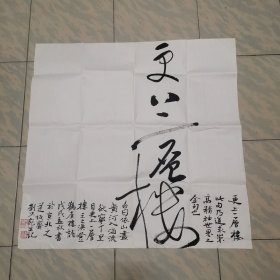 更上一层楼
更上一层楼
此句乃道出崇
高报世界之
金句也
白日依山尽
黄河入海流
欲穷千里
目更上一层
楼王之涣登
鹳雀楼诗
戊戌孟秋书
於古北之